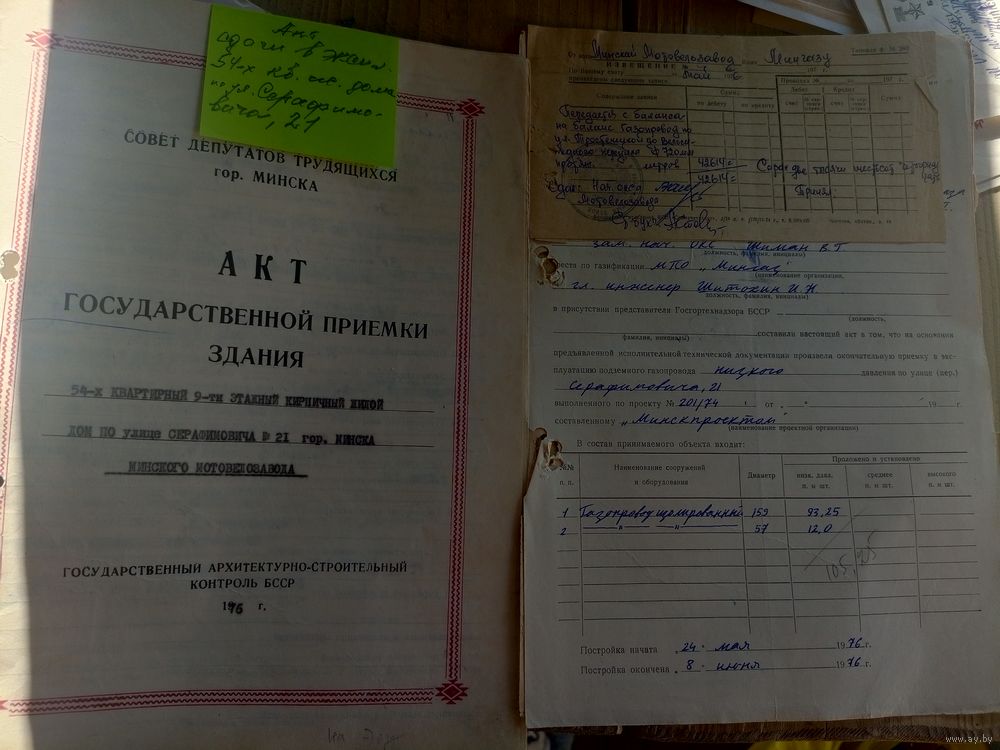 Акт
сдачи в эксп.
54-х кв. жил. дома
по ул. Серафимо-
вича, 21
СОВЕТ ДЕПУТАТОВ ТРУДЯЩИХСЯ
гор. МИНСКА
АКТ
ГОСУДАРСТВЕННОЙ ПРИЕМКИ
ЗДАНИЯ
54-х КВАРТИРНЫЙ 9-ти ЭТАЖНЫЙ КИРПИЧНЫЙ ЖИЛОЙ
ДОМ ПО улице СЕРАФИМОВИЧА № 21 гор. МИНСКА
МИНСКОГО МОТОВЕЛОЗАВОДА
ГОСУДАРСТВЕННЫЙ АРХИТЕКТУРНО-СТРОИТЕЛЬНЫЙ
КОНТРОЛЬ БССР
1976 г.
Минский Мотовелозавод Мингазу
ИЗВЕЩЕНИЕ
май 197 г.
Содержание записи Сумма Дебет Кредит Сумма
по дебету по кредиту
Передается с баланса
на баланс газопровод по
ул.
Ф 720мм
42614=
42614=
Сдал: Нач. окса Принял:
Мотовелозавода
зам. нач. ОКС Шиман В.Г.
должность, фамилия, инициалы)
треста по газификации МПО „Мингаз"
(наименование организации,
гл. инженер Шитохин И.Н.
должность, фамилия, инициалы)
в присутствии представителя Госгортехнадзора БССР
(должность,
составили настоящий акт в том, что на основании
фамилия, инициалы)
предъявленной исполнительной технической документации произвела окончательную приемку в экс-
плуатацию подземного газопровода низкого давления по улице (пер.)
Серафимовича, 21
выполненного по проекту № 201/74 от 19 г.
составленному „Минскпроектом"
(наименование проектной организации)
В состав принимаемого объекта входит:
№№ п. п. Наименование сооружений и оборудования Диаметр Проложено и установлено
низк. давл. п. м шт. среднее п. м шт. высокого п. м шт.
1 Газопровод изолированный 159 93,25
2 —"— —"— 57 12,0
105,25
Постройка начата „24" мая 1976 г.
Постройка окончена „8" июня 1976 г.
www.ay.by